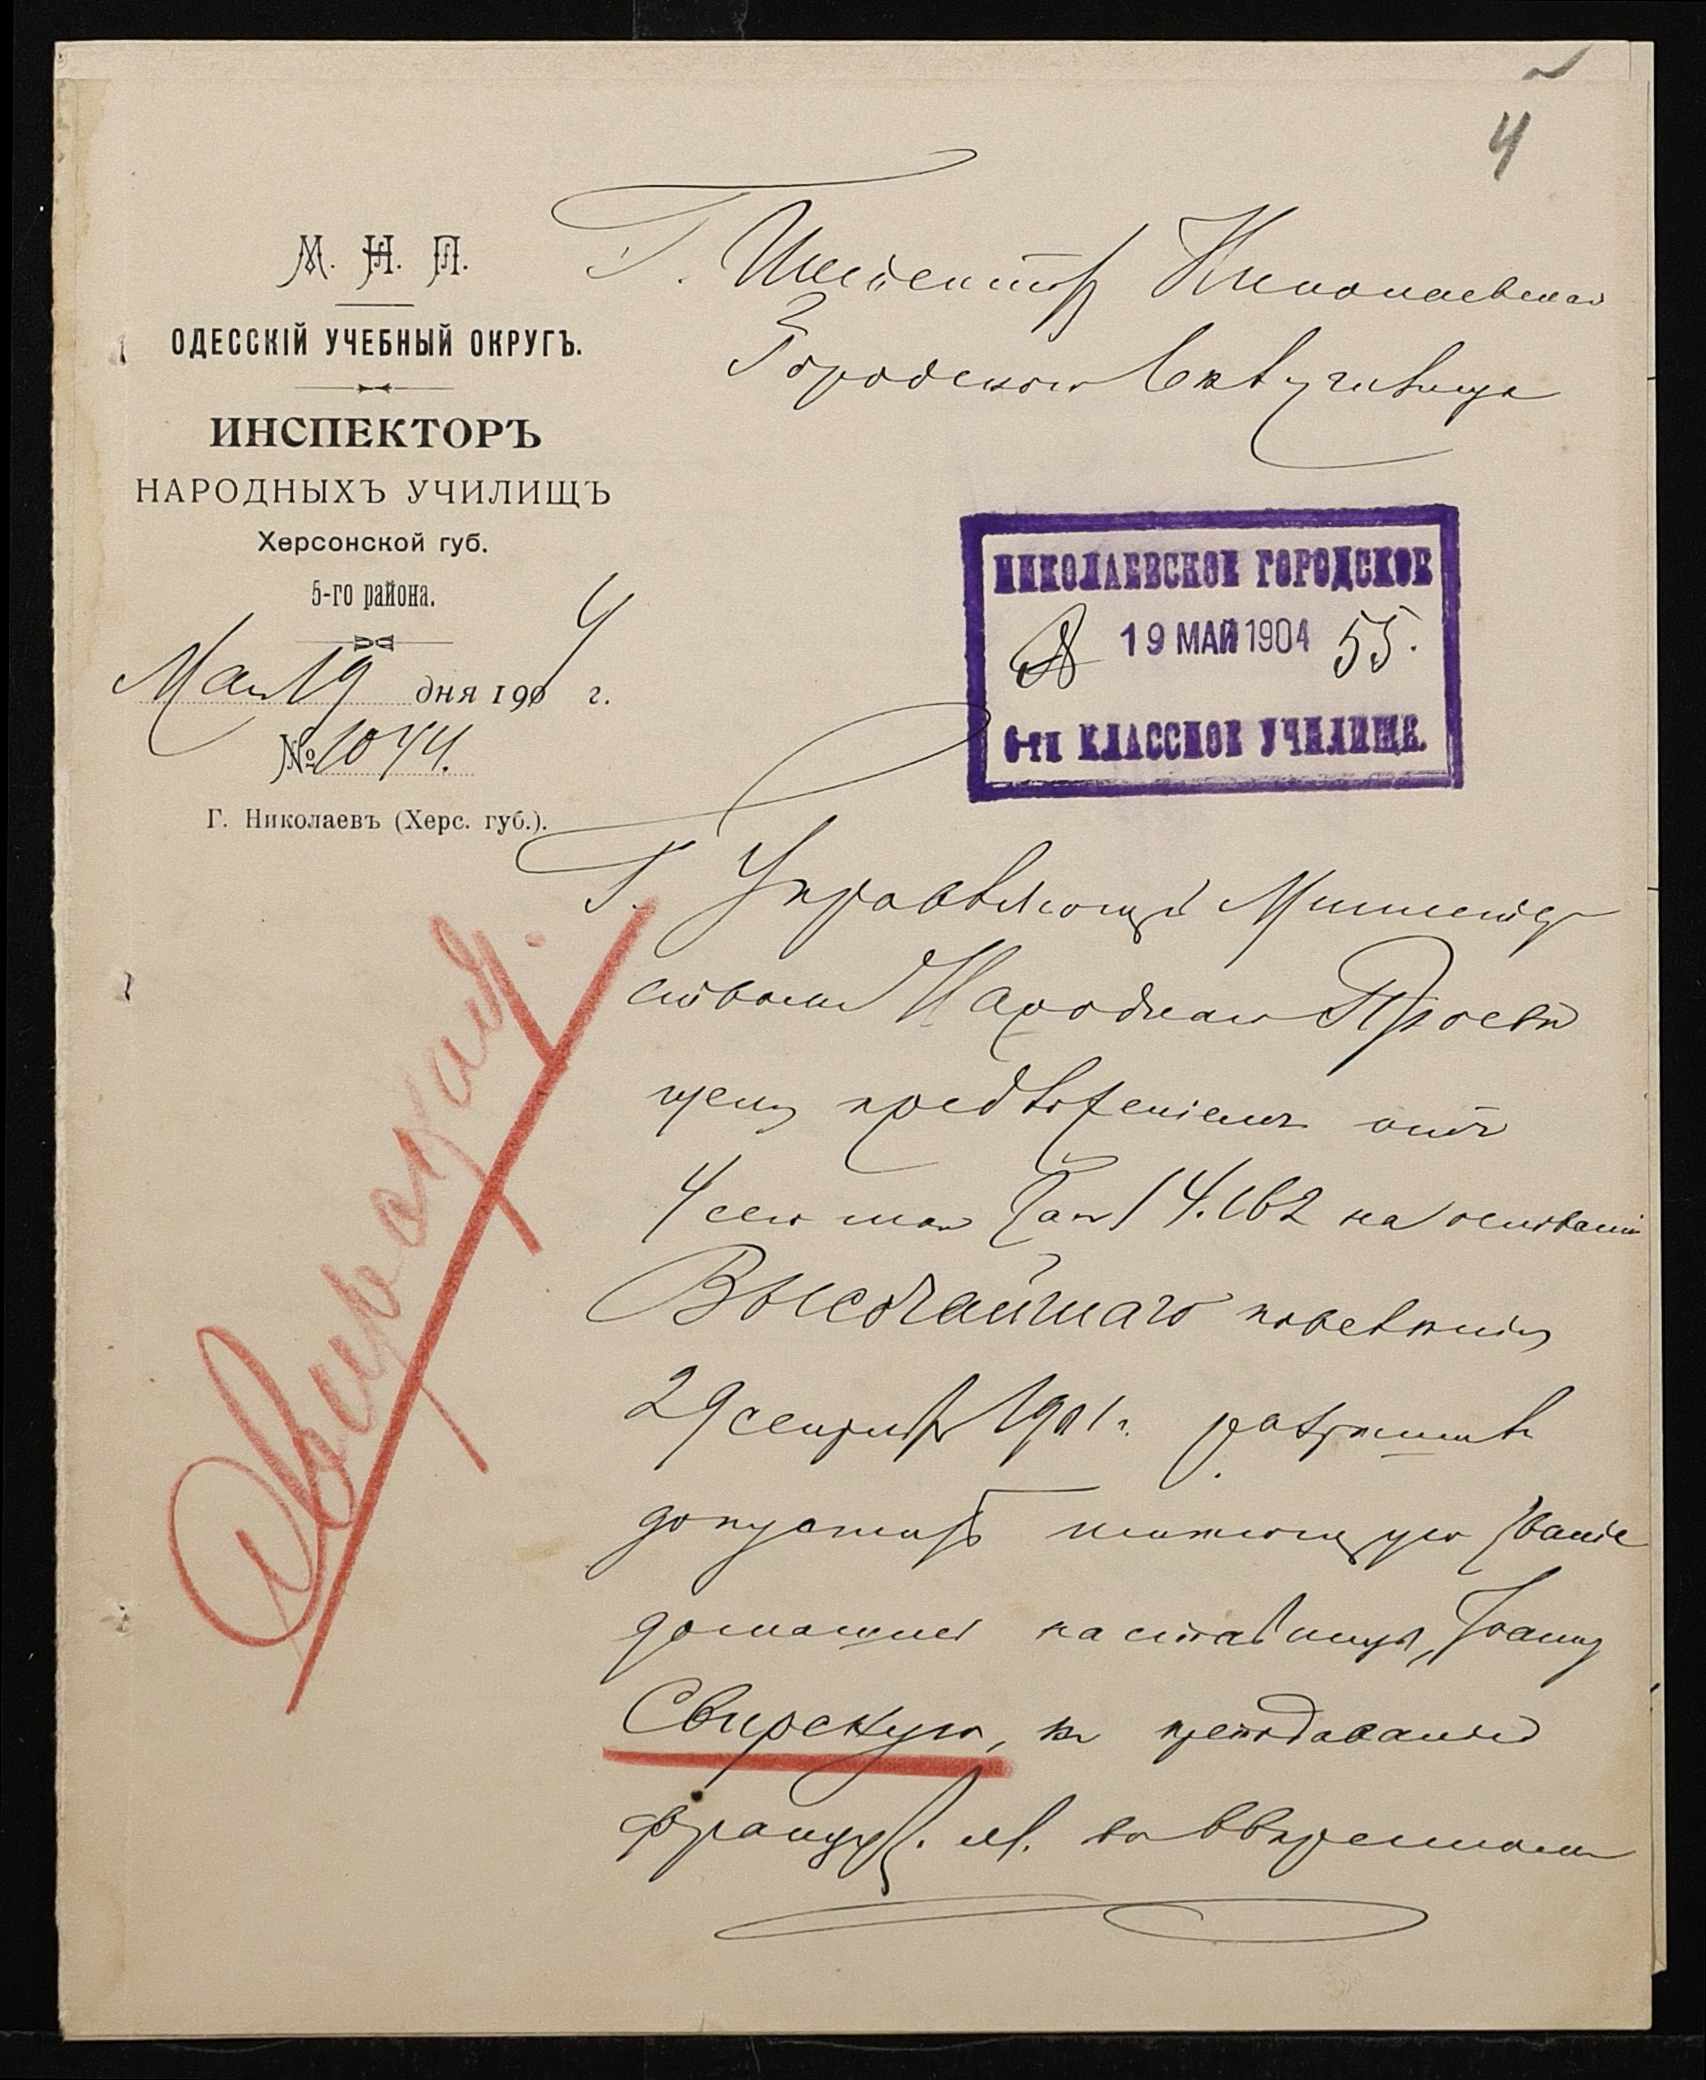 4
М. Н. П.
ОДЕССКІЙ УЧЕБНЫЙ ОКРУГЪ.
ИНСПЕКТОРЪ
НАРОДНЫХЪ УЧИЛИЩЪ
Херсонской губ.
5-го района.
Мая 19 дня 1904 г.
№ 1044.
Г. Николаевъ (Херс. губ.).
Г. Инспектору Николаевскаго
Городского 6 кл училища
НИКОЛАЕВСКОЕ ГОРОДСКОЕ
19 МАЙ 1904 55.
6-ти КЛАССНОЕ УЧИЛИЩЕ.
Г. Управляющій Министер
ствомъ Народнаго Просвѣ
щенія предложеніемъ отъ
4 сего мая за № 14.162 на основаніи
Высочайшаго повелѣнія
29 сентября 1901 г. разрѣшилъ
допустить имѣющую званіе
домашней наставницы,
Свирскую, къ преподаванію
француз. яз. во ввѣренномъ